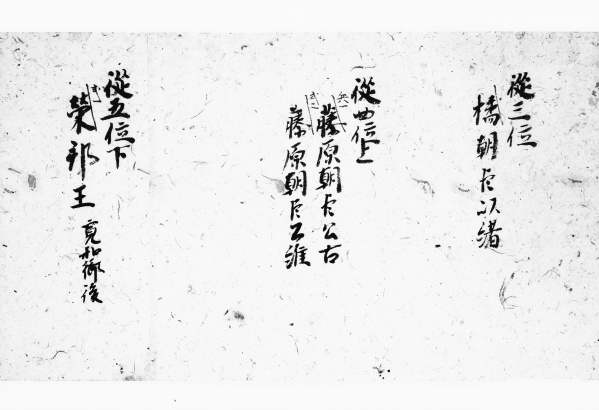 従三位
橘朝臣以緒
従四位上
藤原朝臣公古
藤原朝臣公維
従五位下
榮邦王 寛和御後